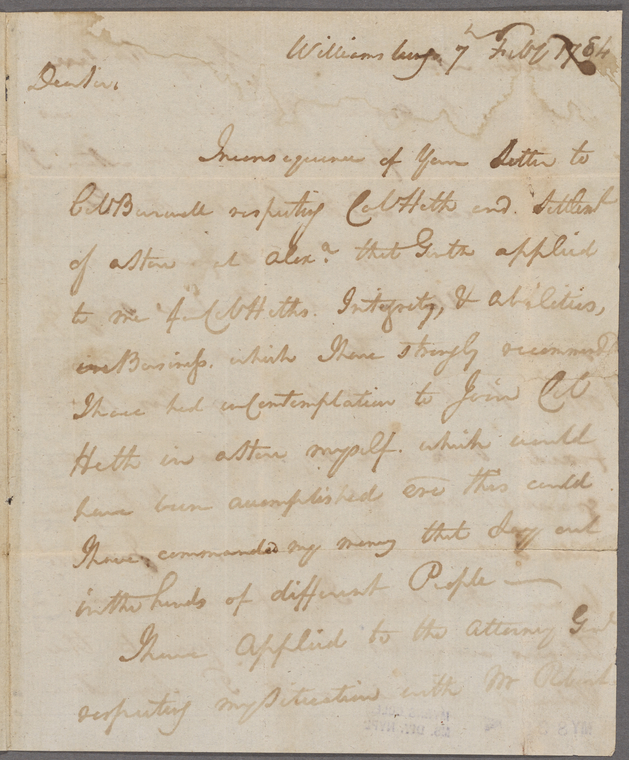 Williamsburg 7th Feby 1784
Dear Sir,
Inconsequence of Your Letter to
Col Burwell respecting Col Heth and. Settlemt
of a Store at Alexa that Gentn applied
to me for Col Heths. Integrity, & abilities,
in Business. which I have strongly recommend
I have had in Contemplation to Join Col
Heth in a Store myself. which would
have been accomplished ere this could
I have commanded my money that lay out
in the hands of different People
I have applied to the Attorney Genl
respecting my Situation with Mr